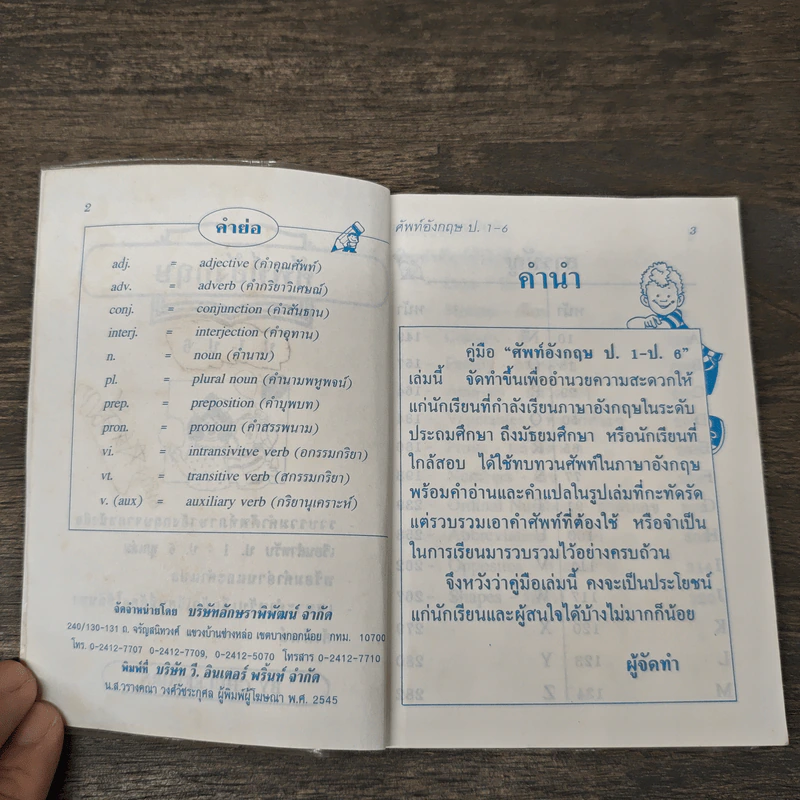 2
คำย่อ
adj. = adjective (คำคุณศัพท์)
adv. = adverb (คำกริยาวิเศษณ์)
conj. = conjunction (คำสันธาน)
interj. = interjection (คำอุทาน)
n. = noun (คำนาม)
pl. = plural noun (คำนามพหูพจน์)
prep. = preposition (คำบุพบท)
pron. = pronoun (คำสรรพนาม)
vi. = intransivitve verb (อกรรมกริยา)
vt. = transitive verb (สกรรมกริยา)
v. (aux) = auxiliary verb (กริยานุเคราะห์)
จัดจำหน่ายโดย บริษัทอักษราพิพัฒน์ จำกัด
240/130-131 ถ. จรัญสนิทวงศ์ แขวงบ้านช่างหล่อ เขตบางกอกน้อย กทม. 10700
โทร. 0-2412-7707 0-2412-7709, 0-2412-5070 โทรสาร 0-2412-7710
พิมพ์ที่ บริษัท วี. อินเตอร์ พริ้นท์ จำกัด
น.ส.วรางคณา วงศ์วัชระกุศล ผู้พิมพ์ผู้โฆษณา พ.ศ. 2545
ศัพท์อังกฤษ ป. 1-6 3
คำนำ
คู่มือ "ศัพท์อังกฤษ ป. 1-ป. 6"
เล่มนี้ จัดทำขึ้นเพื่ออำนวยความสะดวกให้
แก่นักเรียนที่กำลังเรียนภาษาอังกฤษในระดับ
ประถมศึกษา ถึงมัธยมศึกษา หรือนักเรียนที่
ใกล้สอบ ได้ใช้ทบทวนศัพท์ในภาษาอังกฤษ
พร้อมคำอ่านและคำแปลในรูปเล่มที่กะทัดรัด
แต่รวบรวมเอาคำศัพท์ที่ต้องใช้ หรือจำเป็น
ในการเรียนมารวบรวมไว้อย่างครบถ้วน
จึงหวังว่าคู่มือเล่มนี้ คงจะเป็นประโยชน์
แก่นักเรียนและผู้สนใจได้บ้างไม่มากก็น้อย
ผู้จัดทำ